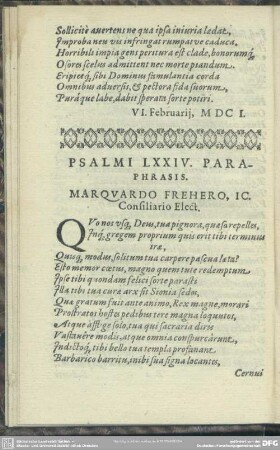 Sollicitè avertens ne qua ipsa iniuria lædat,
Improba neu vis infringat rumpatve caduca,
Horribili impia gens peritura est clade, bonorumq́;
Osores scelus admittent nec morte piandum.
Eripietq́;, sibi Dominus famulantia corda
Omnibus adversis, & pectora fida suorum,
Purâ que labe, dabit speratâ sorte potiri.
VI. Februarij, M DC I.
PSALMI LXXIV. PARA-
PHRASIS.
MARQVARDO FREHERO, IC.
Consiliario Elect.
QVo nos usq́;, Deus, tua pignora, quæso repelles,
Inq́;, gregem proprium quis erit tibi terminus
iræ,
Quisq́;, modus, solitum tua carpere pascua læta?
Esto memor cœtus, magno quem tute redemptum
Ipse tibi quondam felici sorte parasti
Illa tibi tua cura arx sit Sionia sedes,
Qua gratum fuit ante animo, Rex magne, morari
Prostratos hostes pedibus tere magna loquutos,
Atque afflige solo, tua qui sacraria diris
Vastavêre modis, atque omnia conspurcârunt,
Indictoq́;, tibi bello tua templa profanant,
Barbarico barritu, inibi sua signa locantes,
Cernui